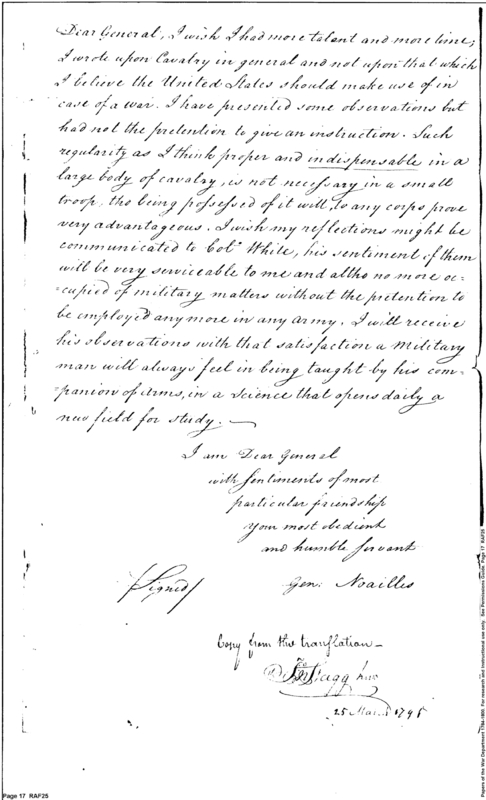 Dear General, I wish I had more talent and more time;
I wrote upon Cavalry in general and not upon that which
I believe the United States should make use of in
case of a war. I have presented some observations but
had not the pretention to give an instruction. Such
regularity as I think proper and indispensable in a
large body of cavalry, is not necessary in a small
troop, tho being possessed of it will to any corps prove
very advantageous. I wish my reflections might be
communicated to Colo White, his sentiment of them
will be very serviceable to me and altho no more oc-
-cupied of military matters without the pretention to
be employed any more in any army. I will receive
his observations with that satisfaction a Military
man will always feel in being taught by his com-
-panion of arms, in a science that opens daily a
new field for study. —
I am Dear General
with sentiments of most
particular friendship
your most obedient
and humble servant
/Signed/ Gen: Noailles
Copy from the translation —
25 1795
Page 17 RAF25
Papers of the War Department 1784-1800. For research and instructional use only. See Permissions Guide. Page 17 RAF25